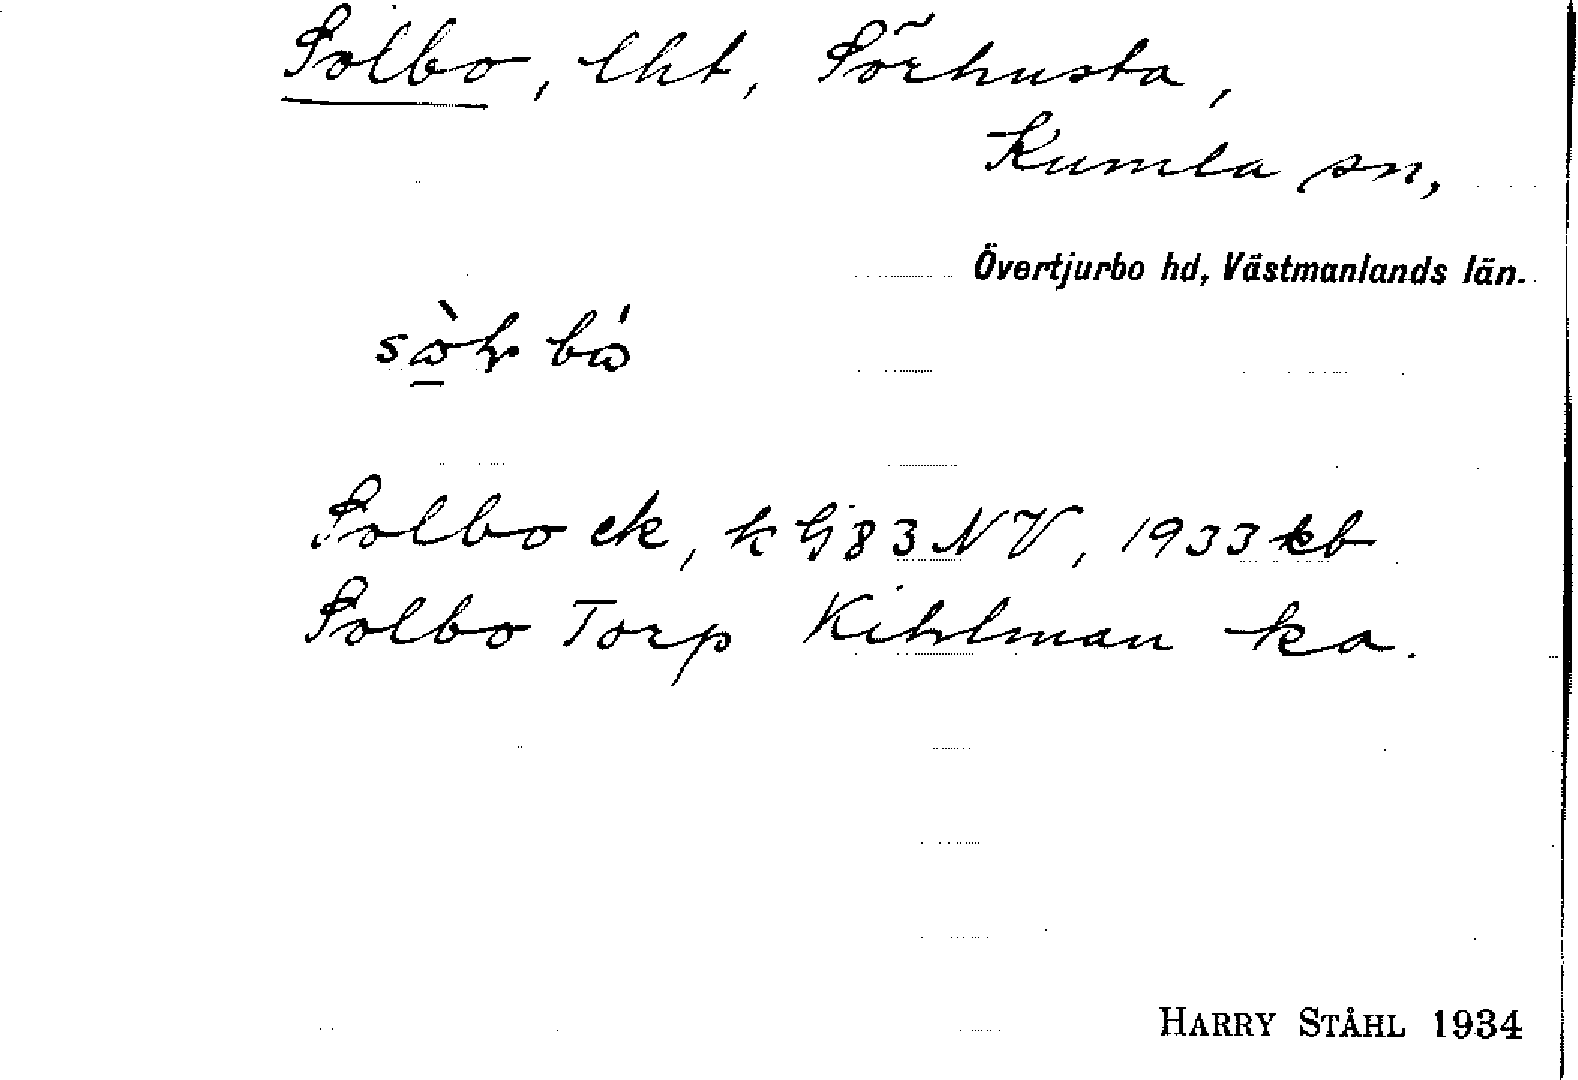 Solbo, lht, Sörhusta,
Kumla sn,
Övertjurbo hd, Västmanlands län.
Solbo ek, k G 83 NV, 1933 kb
Solbo Torp Kihlman ka.
HARRY STÅHL 1934